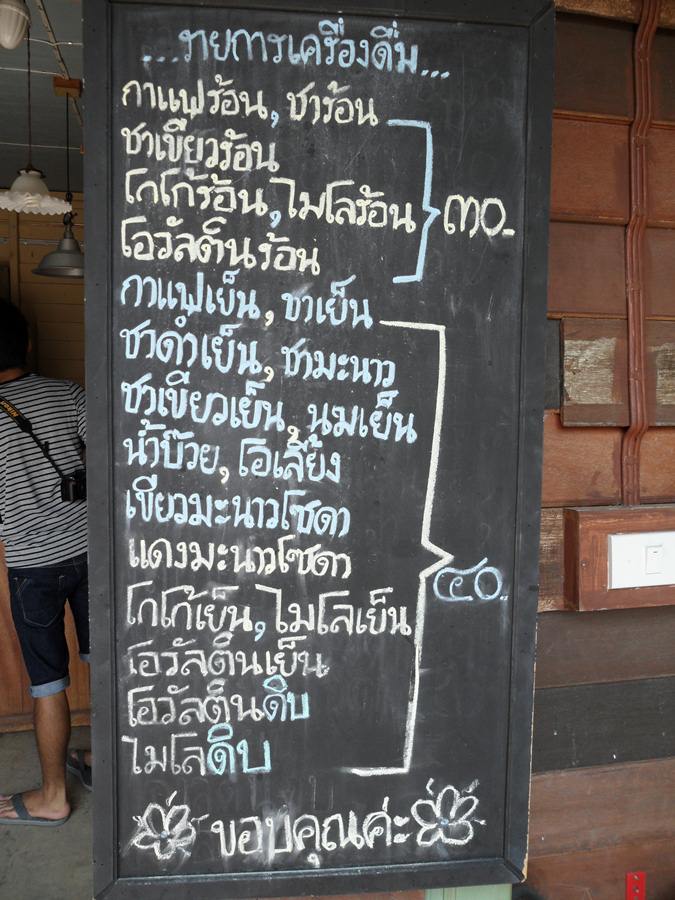 ...รายการเครื่องดื่ม...
กาแฟร้อน, ชาร้อน
ชาเขียวร้อน
โกโก้ร้อน, ไมโลร้อน ๓๐.-
โอวัลตินร้อน
กาแฟเย็น, ชาเย็น
ชาดำเย็น, ชามะนาว
ชาเขียวเย็น, นมเย็น
น้ำบ๊วย, โอเลี้ยง
เขียวมะนาวโซดา
แดงมะนาวโซดา
๔๐.-
โกโก้เย็น, ไมโลเย็น
โอวัลตินเย็น
โอวัลตินดิบ
ไมโลดิบ
ขอบคุณค่ะ